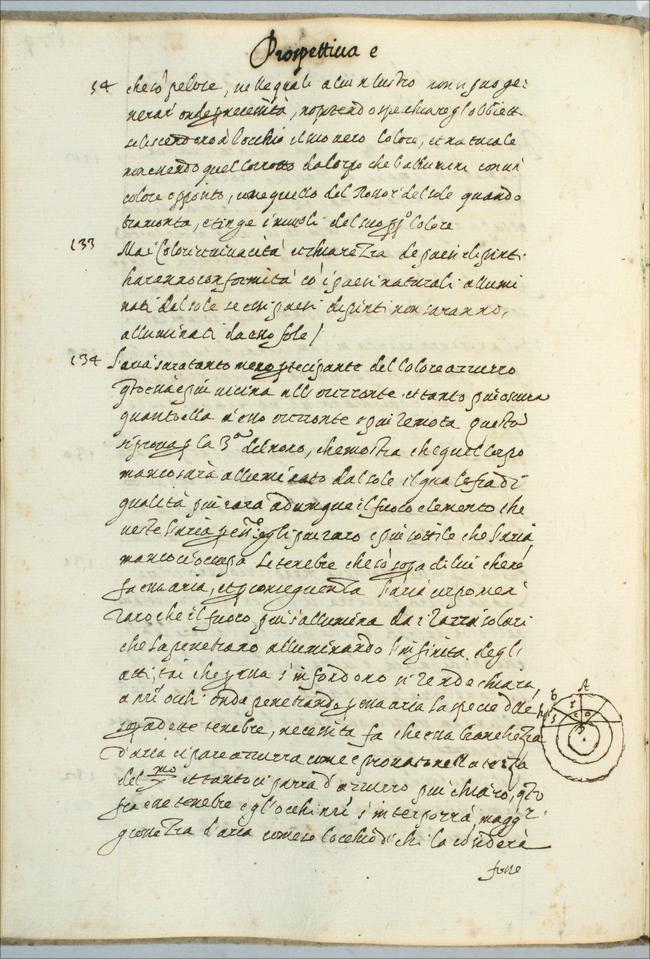 Prospettiua e
54 che cō pelose, nelle quali alcun lustro non si puo ge:
nerar onde p necessità, nō potendo spechiare gl'obbietti
all'occhio il suo nero colore, et naturale
non essendo quel corrotto dal corpo che l'allumina con un
colore opposito, come quello del rossor del sole quando
tramonta, et tinge i nuuoli del suo pp.o colore
133 Ma i colori et uiuacità et chiarezza de paesi dipinti
haranno conformità cō i paesi naturali allumi
nati dal sole se essi paesi dipinti non saranno,
alluminati da esso sole /
134 L'aria sara tanto meno ptecipante del colore azzurro
qto essa è piu uicina all'orizzonte et tanto piu oscura
quanto ella à esso orizzonte e piu remota questo
si proua p la 3.a del nono, che mostra che quel corpo
manco sarà alluminato dal sole il quale sia di
qualità piu rara adunque il fuoco elemento che
ueste l'aria p egli piu raro e piu sottile che l'aria
manco ci occupa le tenebre che sō sopa di lui che nō
fa essa aria, et p conseguenza l'aria corpo men
raro che il fuoco piu s'allumina da i razzi solari
che la penetrano alluminando l'infinita degli
attimi che p essa s'infondono si rende chiara,
a nrī ochi onde penetrando p essa aria la spetie delle
sopa dette tenebre, necessita fa che essa bianchezza
d'aria ci pare azzurra come e prouato nella terza
del x.mo et tanto ci parra d'azzurro piu chiaro, qto
fra esse tenebre e gl'occhi nrī s'interporrà magg.r
grossezza d'aria come se l'occhio di chi la cōsidera
fusse
A